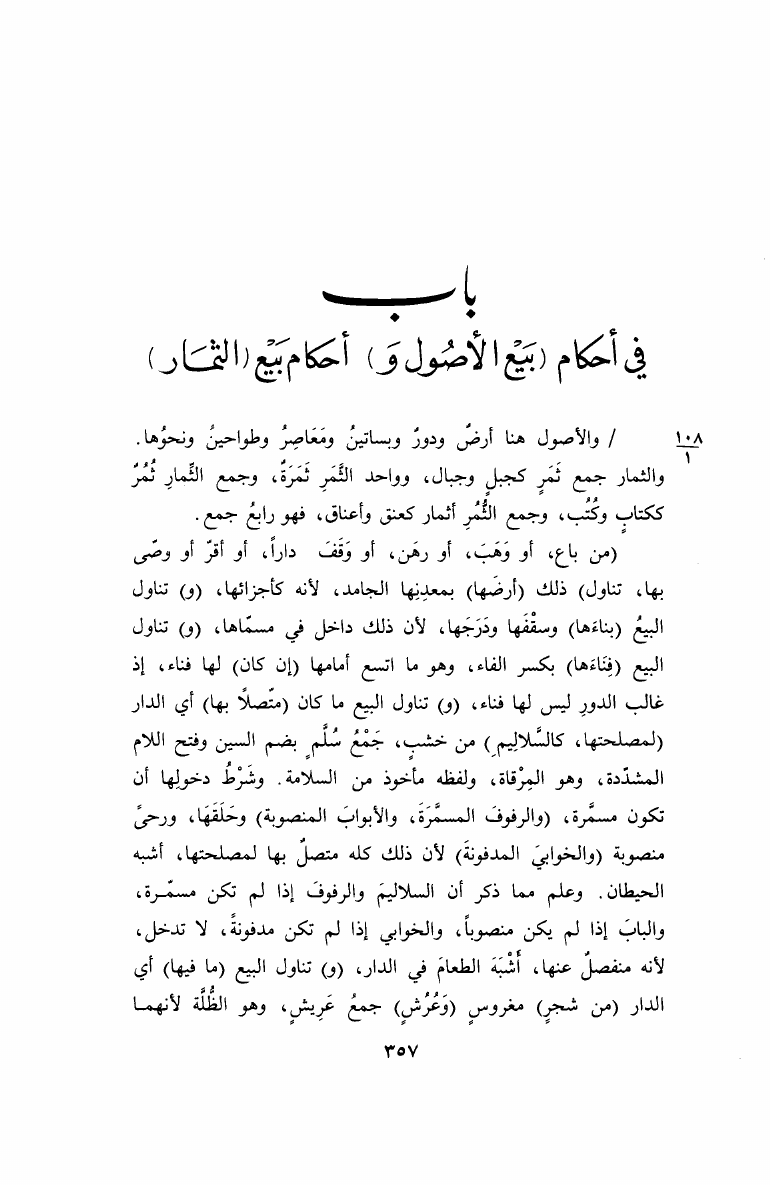 باب
في أحكام (بَيْع الأصُول وَ) أحكام بَيْع (الثمَار)
١٠٨
١
/ والأصول هنا أرضٌ ودورٌ وبساتينُ ومَعَاصِرُ وطواحينُ ونحوُها.
والثمار جمع ثَمَرٍ كجبلٍ وجبال، وواحد الثَّمَرِ ثَمَرَةٌ، وجمع الثِّمارِ ثُمُرٌ
ككتابٍ وكُتُب، وجمع الثُّمُرِ أثمار كعنق وأعناق، فهو رابعُ جمع.
(من باع، أو وَهَبَ، أو رهَن، أو وَقَفَ داراً، أو أقرّ أو وصّى
بها، تناول) ذلك (أرضَها) بمعدنِها الجامد، لأنه كأجزائها، (و) تناول
البيعُ (بناءَها) وسقْفَها ودَرَجَها، لأن ذلك داخل في مسمّاها، (و) تناول
البيع (فِنَاءَها) بكسر الفاء، وهو ما اتسع أمامها (إن كان) لها فناء، إذ
غالب الدورِ ليس لها فناء، (و) تناول البيع ما كان (متّصلاً بها) أي الدار
(لمصلحتها، كالسَّلالِيمِ) من خشبٍ، جَمْعُ سُلَّمٍ بضم السين وفتح اللام
المشدّدة، وهو المِرْقاة، ولفظه مأخوذ من السلامة. وشَرْطُ دخولِها أن
تكون مسمَّرة، (والرفوفَ المسمَّرَةَ، والأبوابَ المنصوبة) وحَلَقَهَا، ورحىً
منصوبة (والخوابيَ المدفونةَ) لأن ذلك كله متصلٌ بها لمصلحتها، أشبه
الحيطان. وعلم مما ذكر أن السلاليمَ والرفوفَ إذا لم تكن مسمّرة،
والبابَ إذا لم يكن منصوباً، والخوابي إذا لم تكن مدفونةً، لا تدخل،
لأنه منفصلٌ عنها، أَشْبَهَ الطعامَ في الدار، (و) تناول البيع (ما فيها) أي
الدار (من شجرٍ) مغروسٍ (وَعُرُشٍ) جمعُ عَرِيشٍ، وهو الظُّلَّة لأنهما
٣٥٧